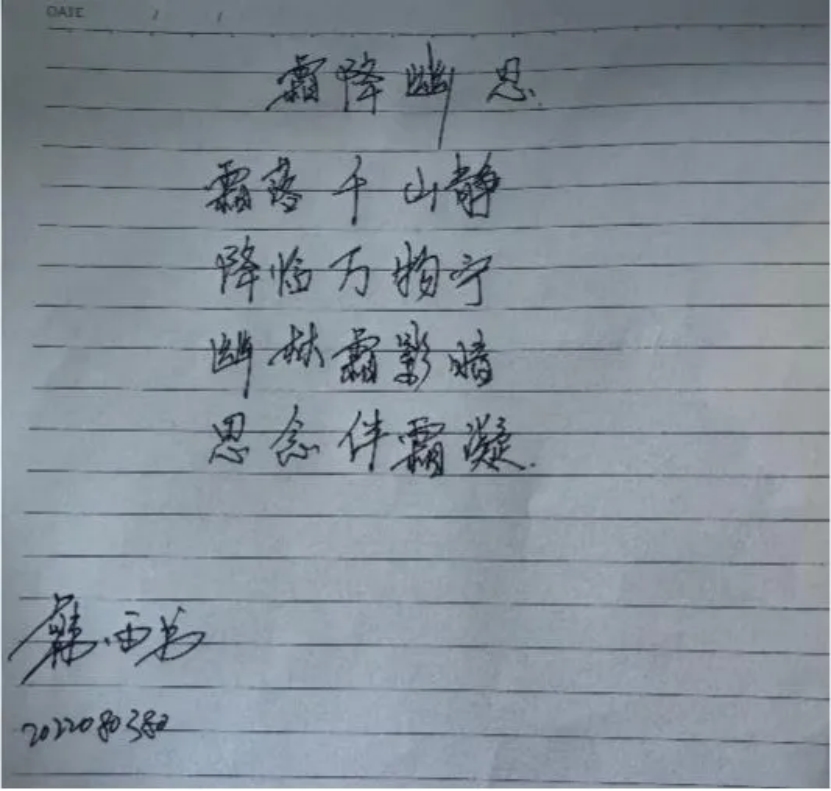 DATE / /
霜降幽思
霜落千山静
降临万物宁
幽林霜影暗
思念伴霜凝.
2022080380